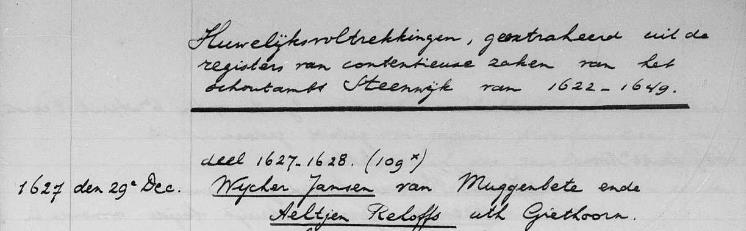 Huwelijksvoltrekkingen, geextraheerd uit de
registers van contentieuse zaken van het
schoutambt Steenwijk van 1622-1649.
deel 1627-1628. (109ˣ)
1627 den 29ᵉ Dec. Wijcher Jansen van Muggenbete ende
Aeltjen Reloffs uth Giethoorn.